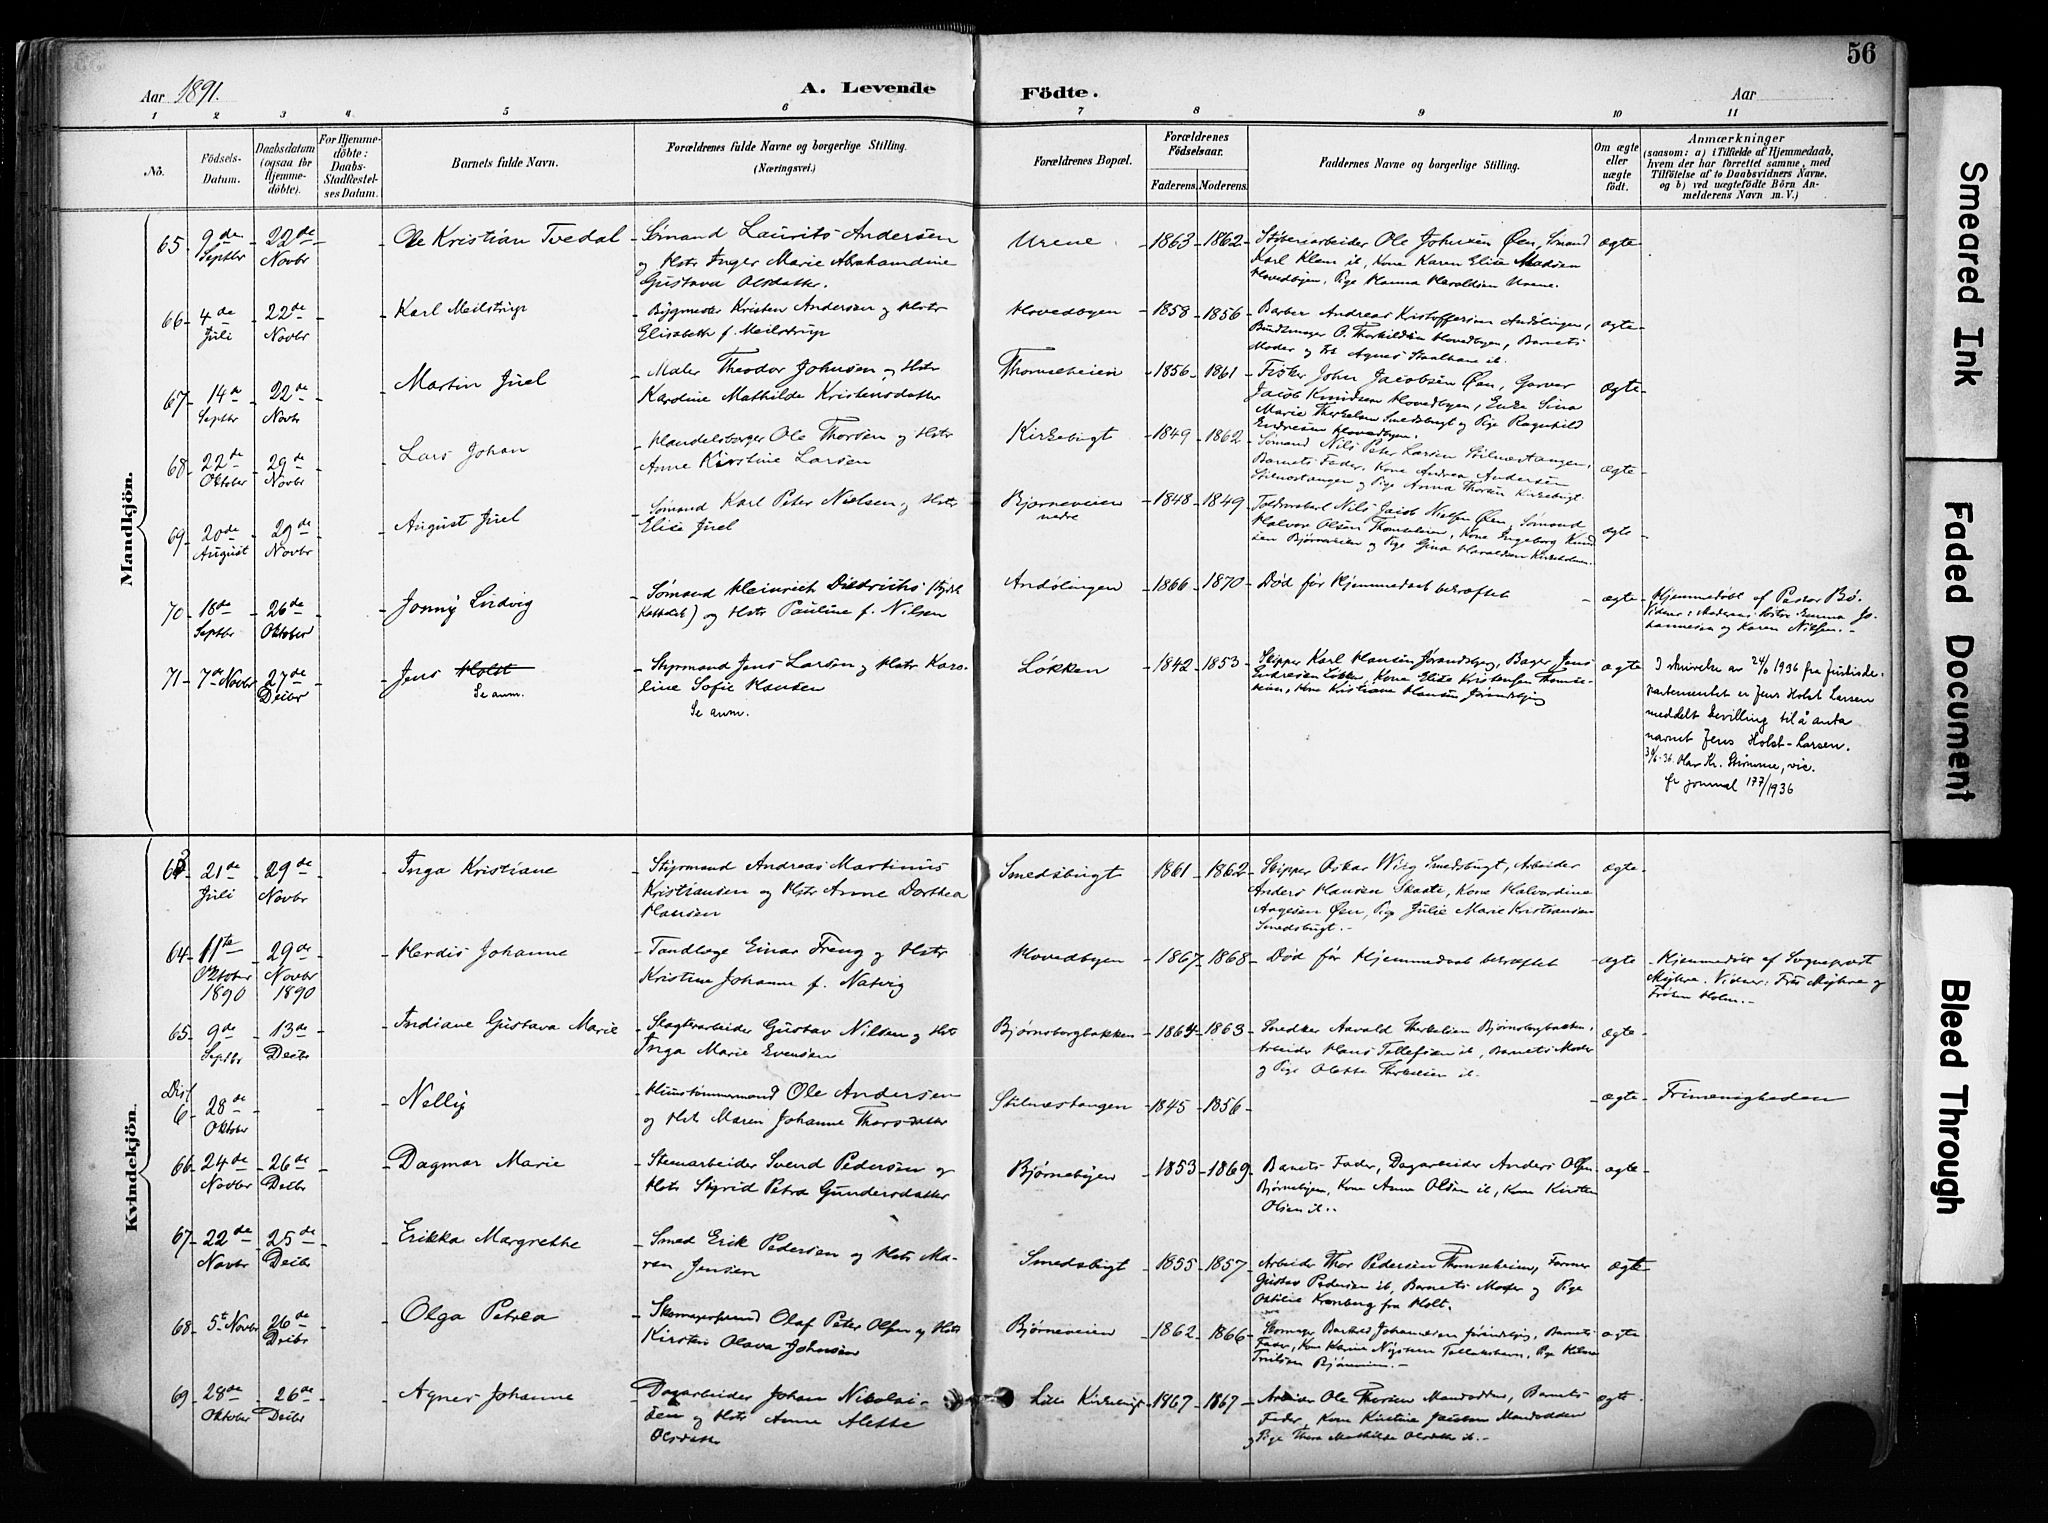 56
Aar 1891.
A. Levende Födte.
Aar
1 2 3 4 5 6 7 8 9 10 11
No.
Födsels-Datum.
Daabsdatum (ogsaa for Hjemmedöbte).
For Hjemmedöbte: Daabs-Stadfæstelses Datum.
Barnets fulde Navn.
Forældrenes fulde Navne og borgerlige Stilling.
(Næringsvei.)
Forældrenes Bopæl.
Forældrenes Födselsaar.
Faderens. Moderens.
Faddernes Navne og borgerlige Stilling.
Om ægte eller uægte födt.
Anmærkninger
(saasom: a) i Tilfælde af Hjemmedaab, hvem der har forrettet samme, med Tilföielse af to Daabsvidners Navne, og b) ved uægtefödte Börn Anmelderens Navn m. V.)
Mandkjön.
65 9de Septbr 22de Novbr Ole Kristian Tvedal Sømand Laurits Andersen
og Hstr Inger Marie Abrahamdine
Gustava Olsdatter.
Urene 1863 1862 Støberiarbeider Ole Johnsen Øen, Sømand
Karl Klem ib, Kone Karen Elise Madsen
Hovedbyen, Pige Hanna Haraldsen Urene.
ægte
66 4de Juli 22de Novbr Karl Meilstrup Bygmester Kristen Andersen og Hstr
Elisabeth f. Meilstrup
Hovedbyen 1858 1856 Barber Andreas Kristoffersen Andølingen,
Bundtmager O. Thorkildsen Hovedbyen, Barnets
Moder og Frk Agnes Staalhane ib.
ægte
67 14de Septbr 22de Novbr Martin Juel Maler Theodor Johnsen og Hstr
Karoline Mathilde Kristensdatter
Thomseheien 1856 1861 Fisker John Jacobsen Øen, Garver
Jacob Knudsen Hovedbyen, Enke Sina
Marie Therkelsen Smedsbugt og Pige Ragnhild
Endresen Hovedbyen.
ægte
68 22de Oktober 29de Novbr Lars Johan Handelsborger Ole Thorsen og Hstr
Anne Kirstine Larsen
Kirkebugt 1849 1862 Sømand Nils Peter Larsen Stilnestangen,
Barnets Fader, Kone Andrea Andersen
Stilnestangen og Pige Anna Thorsen Kirkebugt.
ægte
69 20de August 29de Novbr August Juel Sømand Karl Peter Nielsen og Hstr
Elise Juel
Bjorneveien nedre 1848 1849 Nils Jacob Nielsen Øen, Sømand
Halvor Olsen Thomseheien, Kone Ingeborg Knudsen
Bjørneveien og Pige Gina Haraldsen
ægte
70 18de Septbr 26de Oktober Jonny Ludvig Sømand Heinrich Diedrichs (tydsk
Katholik) og Hstr Pauline f. Nilsen
Andølingen 1866 1870 Død før Hjemmedaab bekræftet
ægte Hjemmedøbt af Pastor Bø.
Vidner: Moderens Søster Emma Johannesen
og Karen Nilsen.
71 7de Novbr 27de Decbr Jens Holst
Se anm.
Styrmand Jens Larsen og Hstr Karoline
Sofie Hansen
Se anm.
Løkken 1842 1853 Skipper Karl Hansen Jørandsbyg, Bager Jens
Endresen Løkken, Kone Elise Kristensen Thomseheien,
Kone Kristiane Hansen Jørandsbyg
ægte I skrivelse av 24/6 1936 fra Justisdepartementet
er Jens Holst Larsen
meddelt bevilling til å anta
navnet Jens Holst-Larsen.
30/6-36. Olav Kr. Strømme, vic.
jfr journal 177/1936
Kvindekjön.
63 21de Juli 29de Novbr Inga Kristiane Styrmand Andreas Martinus
Kristiansen og Hstr Anne Dorthea
Hansen
Smedsbugt 1861 1862 Skipper Oskar Wiig Smedsbugt, Arbeider
Anders Hansen Skaate, Kone Halvardine
Aagesen Øen, Pige Julie Marie Kristiansen
Smedsbugt.
ægte
64 11te Oktober 1890 29de Novbr 1890 Herdis Johanne Tandlæge Einar Freng og Hstr
Kristine Johanne f. Natvig
Hovedbyen 1867 1868 Død før Hjemmedaab bekræftet
ægte Hjemmedøbt af Sogneprest
Myhre. Vidner: Fru Myhre og
Frøken Holm.
65 9de Septbr 13de Decbr Indiane Gustava Marie Slagteriarbeider Gustav Nilsen og Hstr
Inga Marie Evensen
Bjørnsborgbakken 1864 1863 Snedker Aavald Therkelsen Bjørnsborgbakken,
Arbeider Hans Tellefsen ib, Barnets Moder
og Pige Olette Therkelsen ib.
ægte
Dis. 6 28de Oktober Nelly Huustømmermand Ole Andersen
og Hstr Maren Johanne Thorsdatter
Stilnestangen 1845 1856 ægte Frimenigheden
66 24de Novbr 26de Decbr Dagmar Marie Stenarbeider Svend Pedersen og
Hstr Sigrid Petra Gundersdatter
Bjørnebyen 1853 1869 Barnets Fader, Dagarbeider Anders Olsen
Bjørnebyen, Kone Anne Olsen ib, Kone Kirsten
Olsen ib.
ægte
67 22de Novbr 25de Decbr Erikka Margrethe Smed Erik Pedersen og Hstr Maren
Jensen
Smedsbugt 1855 1857 Arbeider Thor Pedersen Thomseheien, Former
Gustav Pedersen ib, Barnets Moder og Pige
Ottilie Kronborg fra Holt.
ægte
68 5te Novbr 26de Decbr Olga Petrea Skomagersvend Olaf Peter Olsen og Hstr
Kirsten Olava Johnsen
Bjørneveien 1862 1866 Skomager Johannesen Jørandsbyg, Barnets
Fader, Kone Karine Tellakshavn, Pige
Bjørneveien.
ægte
69 28de Oktober 26de Decbr Agnes Johanne Dagarbeider Johan Nikolaisen
og Hstr Anne Alette
Olsdatter
Lille Kirkebugt 1867 1867 Arbeider Ole Thorsen Manodden, Barnets
Fader, Kone Kirstine Jacobsen Manodden
og Pige Thora Mathilde Olsdatter ib.
ægte
Smeared Ink
Faded Document
Bleed Through